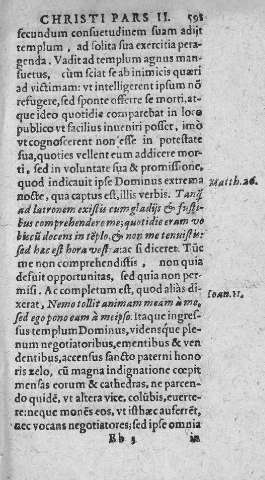 CHRISTI PARS II. 598
secundum consuetudinem suam adijt
templum, ad solita sua exercitia pera-
genda. Vadit ad templum agnus man-
suetus, cùm sciat se ab inimicis quæri
ad victimam: vt intelligerent ipsum nõ
refugere, sed sponte offerre se morti, at-
que ideo quotidie comparebat in loco
publico vt facilius inueniri posset, imò
vt cognoscerent non esse in potestate
sua, quoties vellent eum addicere mor-
ti, sed in voluntate sua & promissione,
quod indicauit ipse Dominus extrema
nocte, qua captus est, illis verbis. Tanq̃
Matth. 26.
ad latronem existis cum gladijs & fusti-
bus comprehendere me; quotidie eram vo
biscũ docens in tẽplo, & non me tenuistis:
sed hæc est hora vestra: ac si diceret. Tũc
me non comprehendistis, non quia
defuit opportunitas, sed quia non per-
misi. Ac completum est, quod aliàs di-
xerat, Nemo tollit animam meam à me,
Ioan. 11.
sed ego pono eam à meipso. Itaque ingres-
sus templum Dominus, vidensque ple-
num negotiatoribus, ementibus & ven
dentibus, accensus sancto paterni hono
ris zelo, cũ magna indignatione cœpit
mensas eorum & cathedras, ne parcen-
do quidẽ, vt altera vice, colũbis, euerte-
re: neque monẽs eos, vt isthæc auferrẽt,
aec vocans negotiatores; sed ipse omnia
Bb 3 in